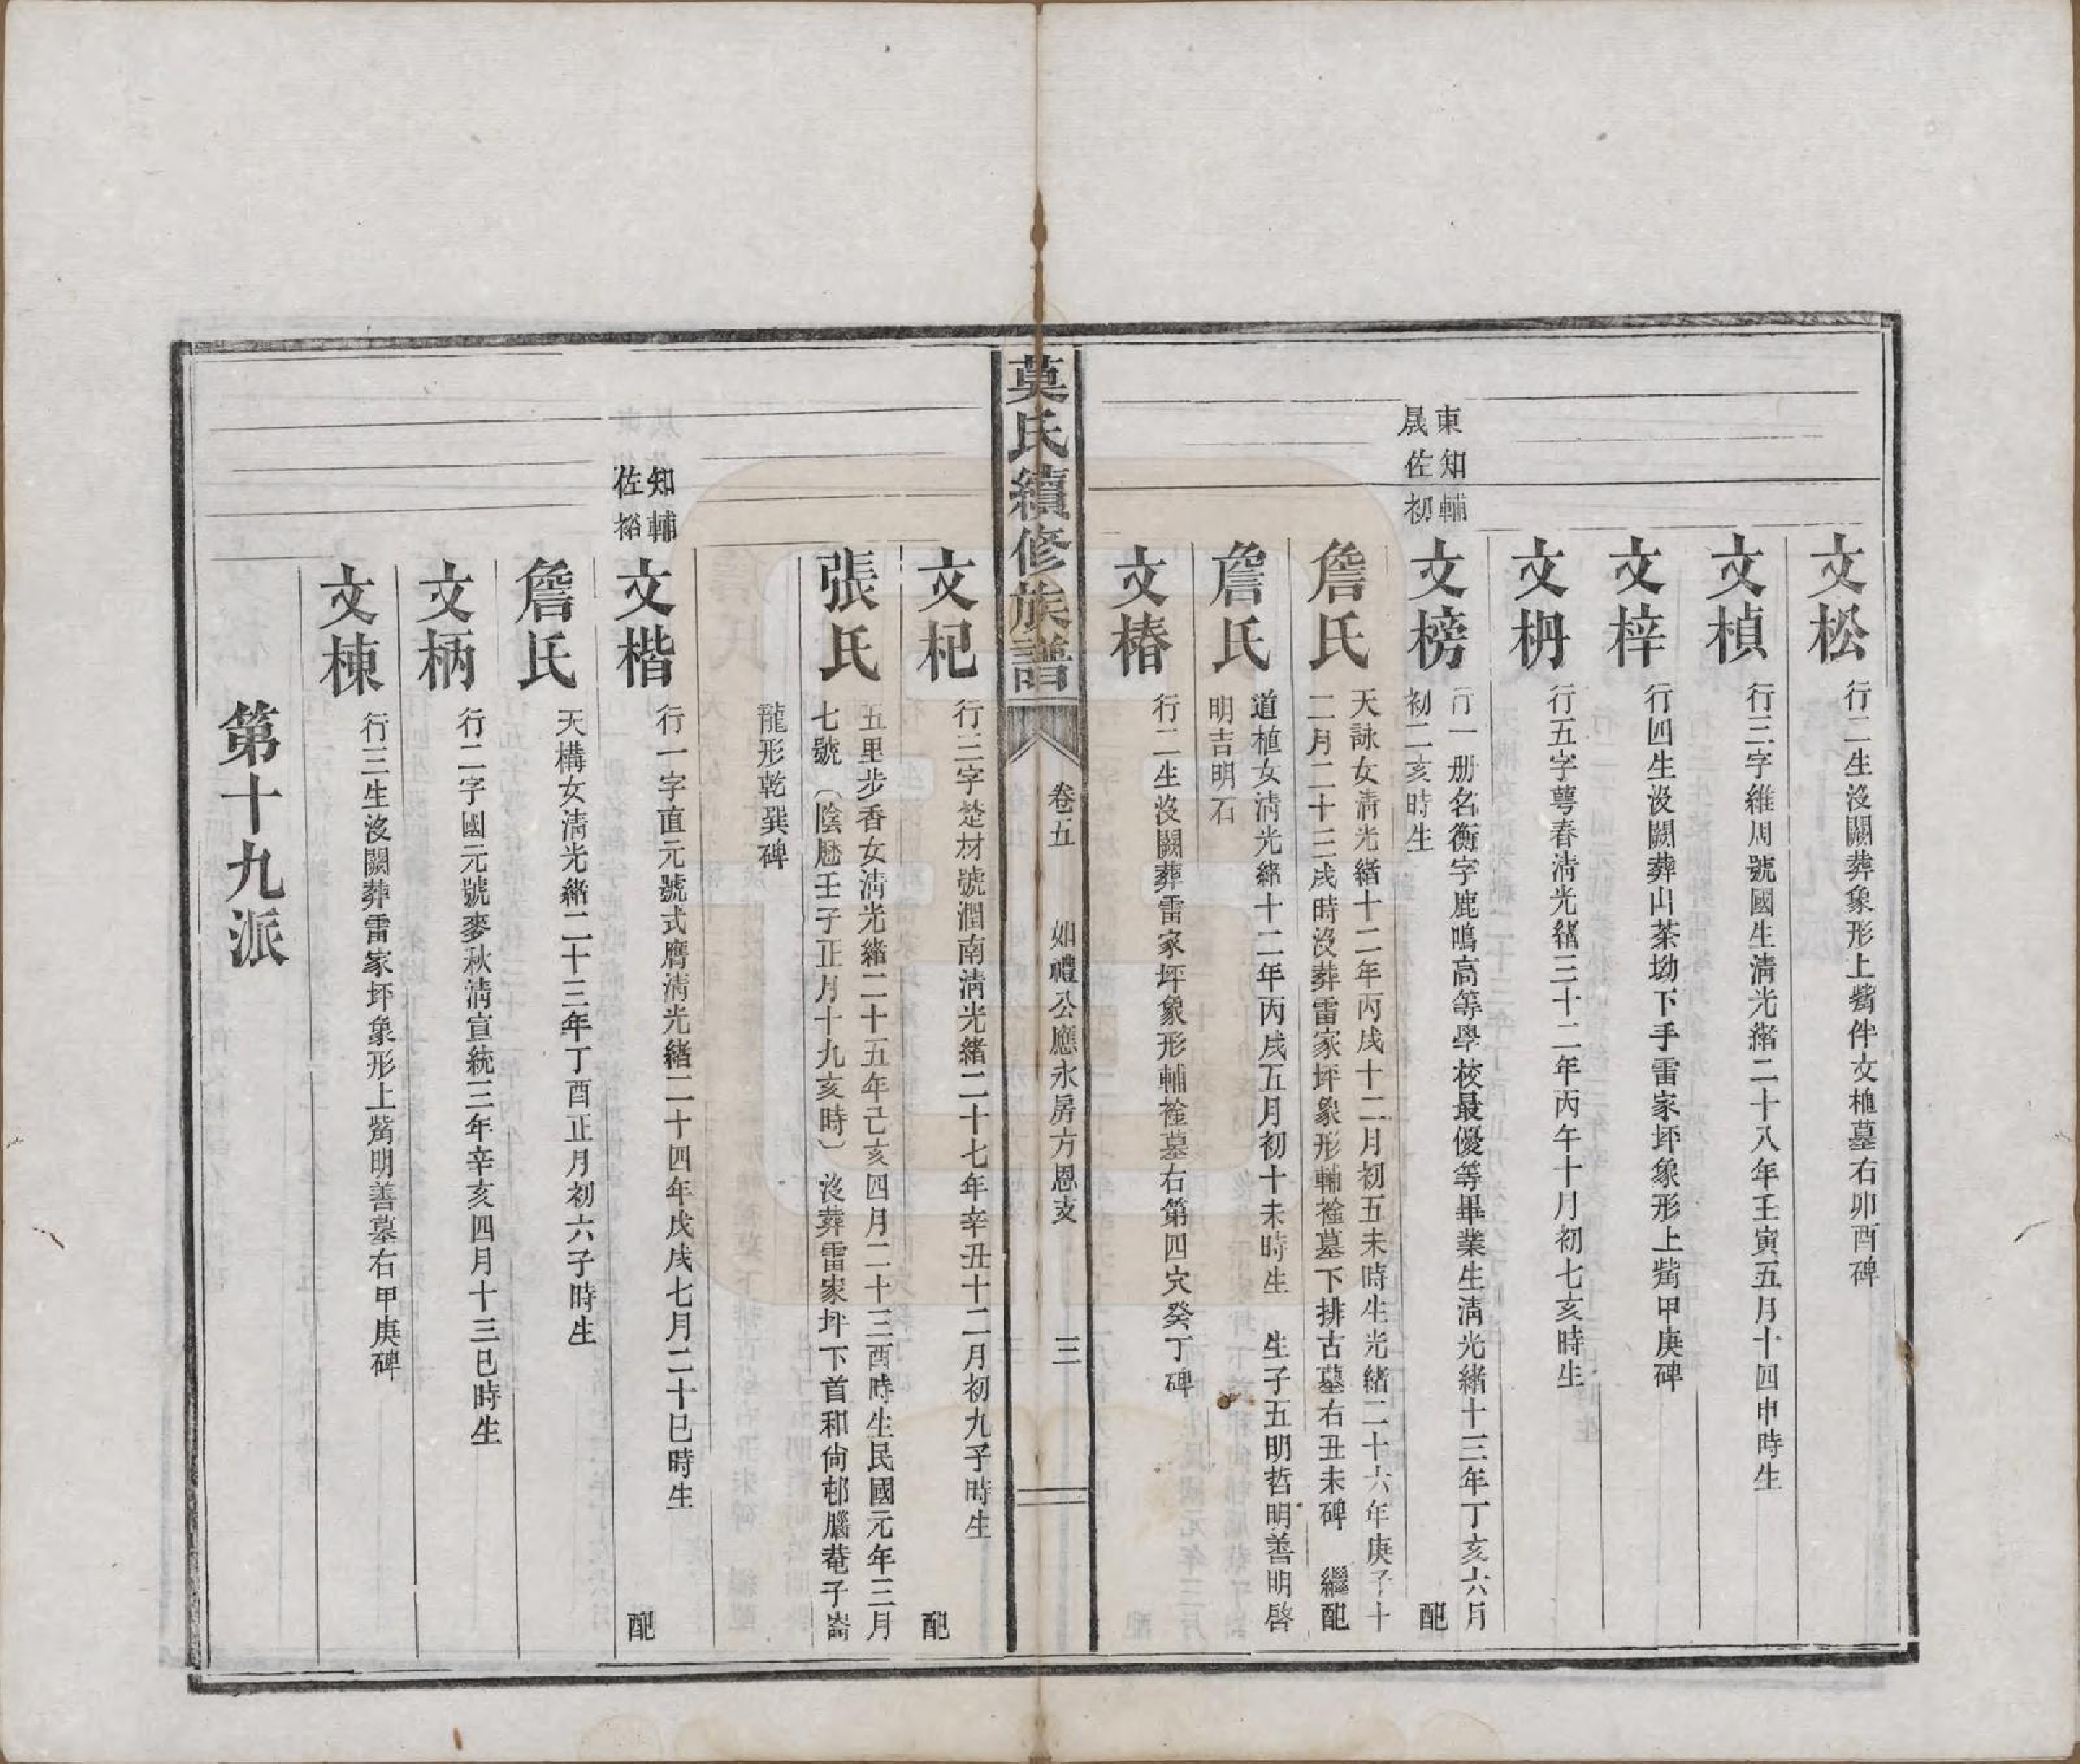 文松 行二生沒闕葬象形上觜件文植墓右卯酉碑
文楨 行三字維周號國生清光緒二十八年壬寅五月十四申時生
文梓 行四生沒闕葬山茶坳下手雷家坪象形上觜甲庚碑
文枬 行五字萼春清光緒三十二年丙午十月初七亥時生
東知輔
晟佐初
文榜 行一册名衡字鹿鳴高等學校最優等畢業生清光緒十三年丁亥六月
初二亥時生 配
詹氏 天詠女清光緒十二年丙戌十二月初五未時生光緒二十六年庚子十
二月二十三戌時沒葬雷家坪象形輔襘墓下排古墓右丑未碑 繼配
詹氏 道植女清光緒十二年丙戌五月初十未時生 生子五明哲明善明啓
明吉明石
文椿 行二生沒闕葬雷家坪象形輔襘墓右第四穴癸丁碑
莫氏續修族譜 卷五 如禮公應永房方恩支 三
文杞 行三字楚材號澗南清光緒二十七年辛丑十二月初九子時生 配
張氏 五里步香女清光緒二十五年己亥四月二十三酉時生民國元年三月
七號（陰曆壬子正月十九亥時）沒葬雷家坪下首和尙邨腦菴子崙
龍形乾巽碑
知輔
佐裕
文楷 行一字直元號式膺清光緒二十四年戊戌七月二十巳時生 配
詹氏 天構女清光緒二十三年丁酉正月初六子時生
文柄 行二字國元號麥秋清宣統三年辛亥四月十三巳時生
文棟 行三生沒闕葬雷家坪象形上觜明善墓右甲庚碑
第十九派